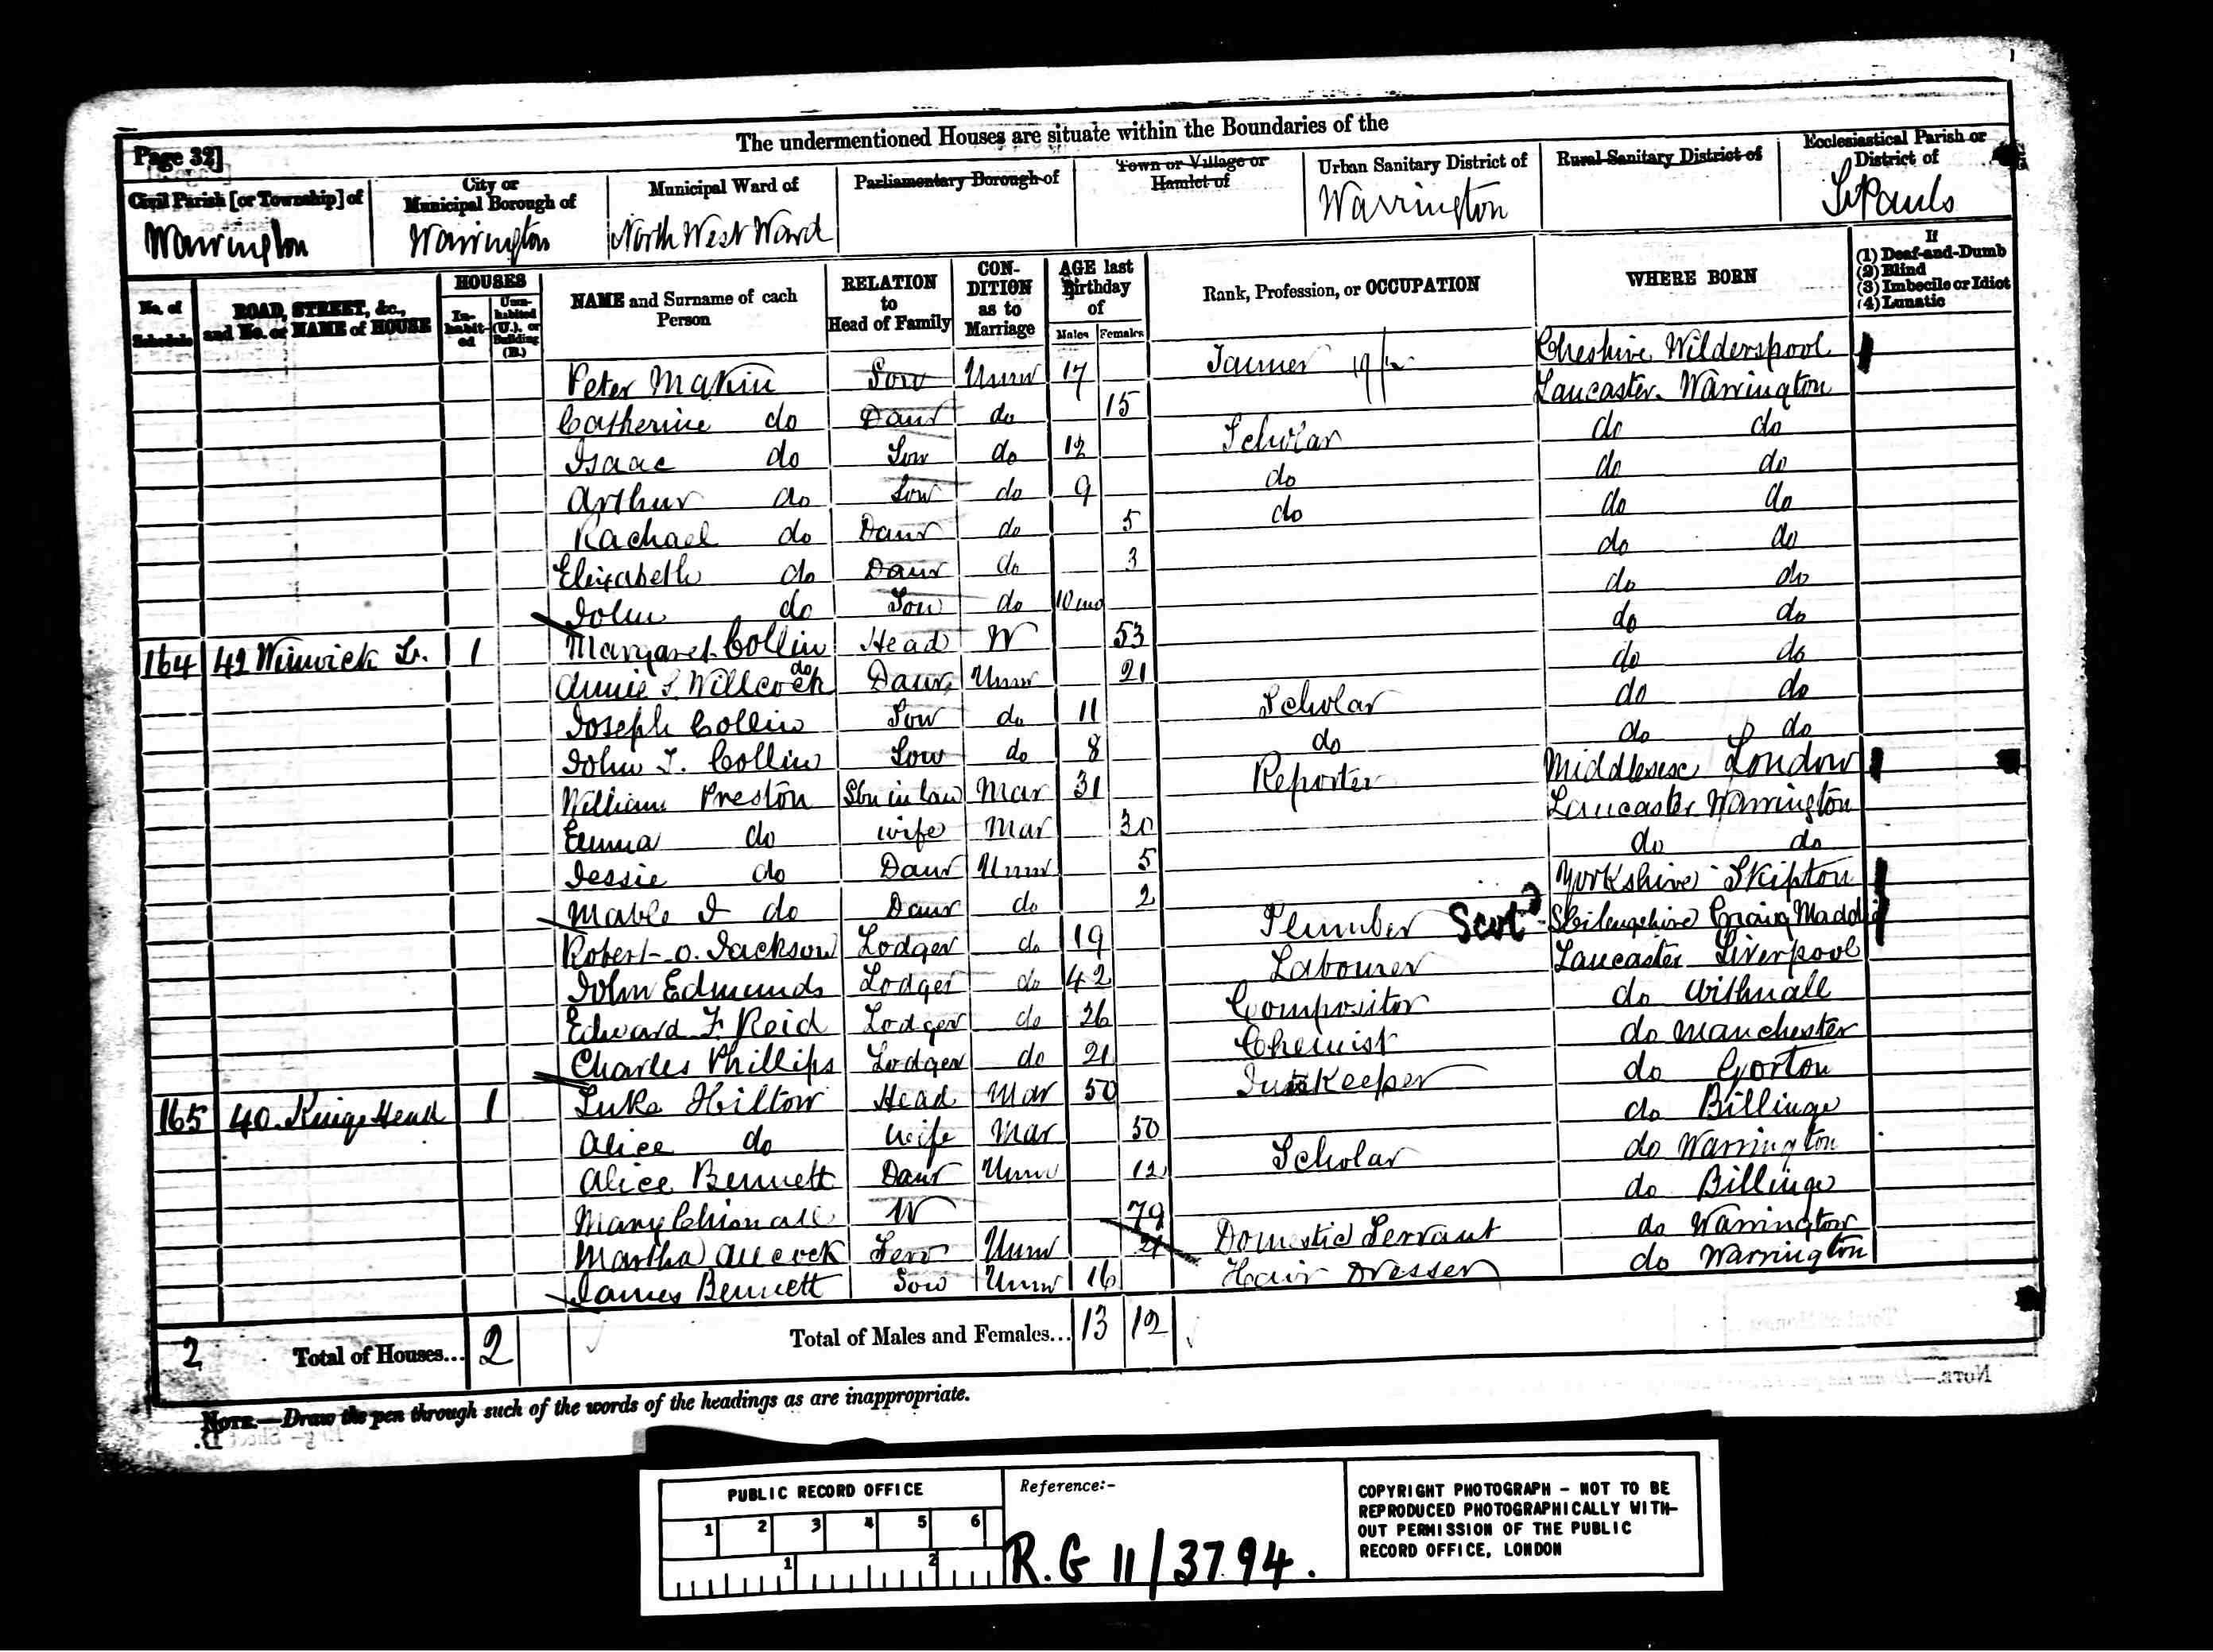 The undermentioned Houses are situate within the Boundaries of the
Page 32]
Civil Parish [or Township] of
Warrington
City or Municipal Borough of
Warrington
Municipal Ward of
North West Ward
Parliamentary Borough of
Town or Village or Hamlet of
Urban Sanitary District of
Warrington
Rural Sanitary District of
Ecclesiastical Parish or District of
St Pauls
No. of Schedule
ROAD, STREET, &c., and No. or NAME of HOUSE
HOUSES
In-habit-ed
Unin-habited (U.), or Building (B.)
NAME and Surname of each Person
RELATION to Head of Family
CON-DITION as to Marriage
AGE last Birthday of
Males
Females
Rank, Profession, or OCCUPATION
WHERE BORN
If
(1) Deaf-and-Dumb
(2) Blind
(3) Imbecile or Idiot
(4) Lunatic
Peter Makin Son Unm 17 Tanner Cheshire Wilderspool
Catherine do Daur do 15 Lancaster Warrington
Isaac do Son do 12 Scholar do do
Arthur do Son do 9 do do do
Rachael do Daur do 5 do do do
Elizabeth do Daur do 3 do do
John do Son do 10 mo do do
164 42 Winwick St. 1 Margaret Collin Head W 53 do do
Annie S. Willcock do Daur Unm 21 do do
Joseph Collin Son do 11 Scholar do do
John T. Collin Son do 8 do do do
William Preston Son in law Mar 31 Reporter Middlesex London
Emma do wife Mar 30 Lancaster Warrington
Jessie do Daur Unm 5 do do
Mable I do Daur do 2 Yorkshire Skipton
Robert O. Jackson Lodger do 19 Plumber Scot Craig Maddie
John Edmunds Lodger do 42 Labourer Lancaster Liverpool
Edward F. Reid Lodger do 26 Compositor do Withnall
Charles Phillips Lodger do 21 Chemist do Manchester
165 40 Kings Head 1 Luke Hilton Head Mar 50 Inn Keeper do Gorton
Alice do Wife Mar 50 do Billinge
Alice Bennett Daur Unm 12 Scholar do Warrington
Mary W 79 do Billinge
Martha Allcock Serv Unm 21 Domestic Servant do Warrington
James Bennett Son Unm 16 Hair Dresser do Warrington
2 Total of Houses... 2 Total of Males and Females... 13 12
NOTE.—Draw the pen through such of the words of the headings as are inappropriate.
PUBLIC RECORD OFFICE
1 2 3 4 5 6
1 2
Reference:-
R.G 11/3794.
COPYRIGHT PHOTOGRAPH – NOT TO BE
REPRODUCED PHOTOGRAPHICALLY WITH-
OUT PERMISSION OF THE PUBLIC
RECORD OFFICE, LONDON